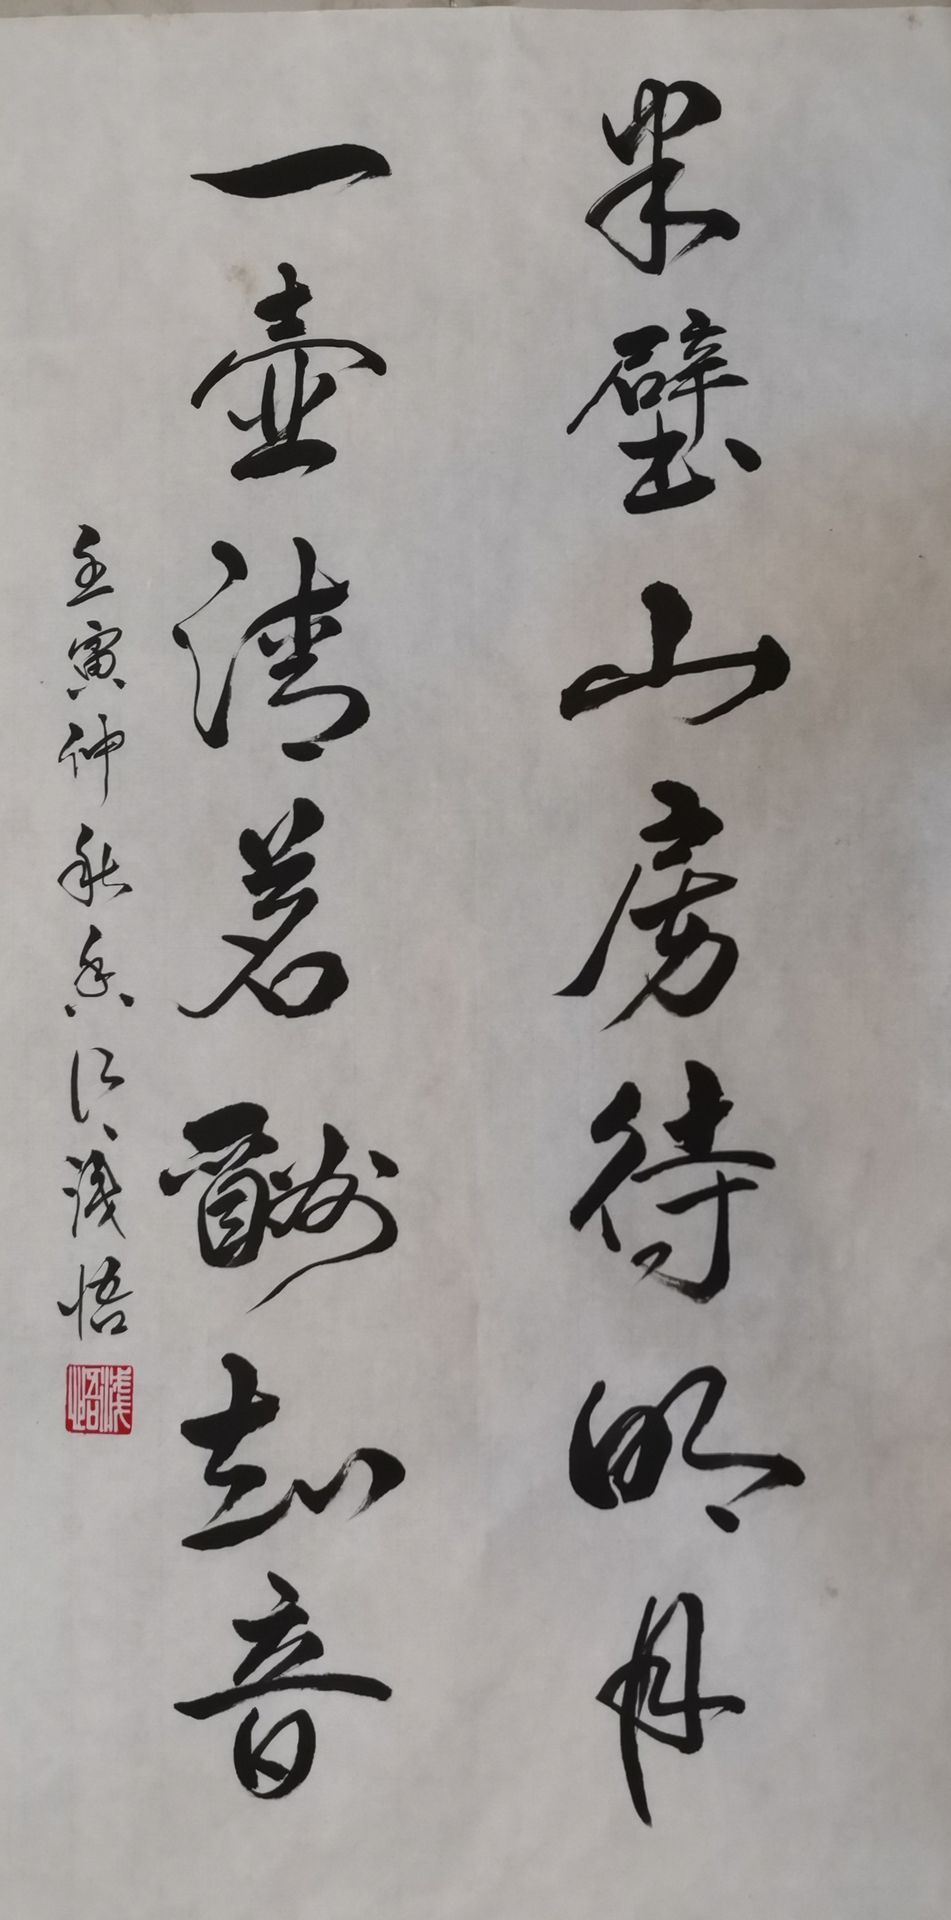 半璧山房待明月
一壶清茗酬知音
壬寅仲秋香江浅悟
浅悟